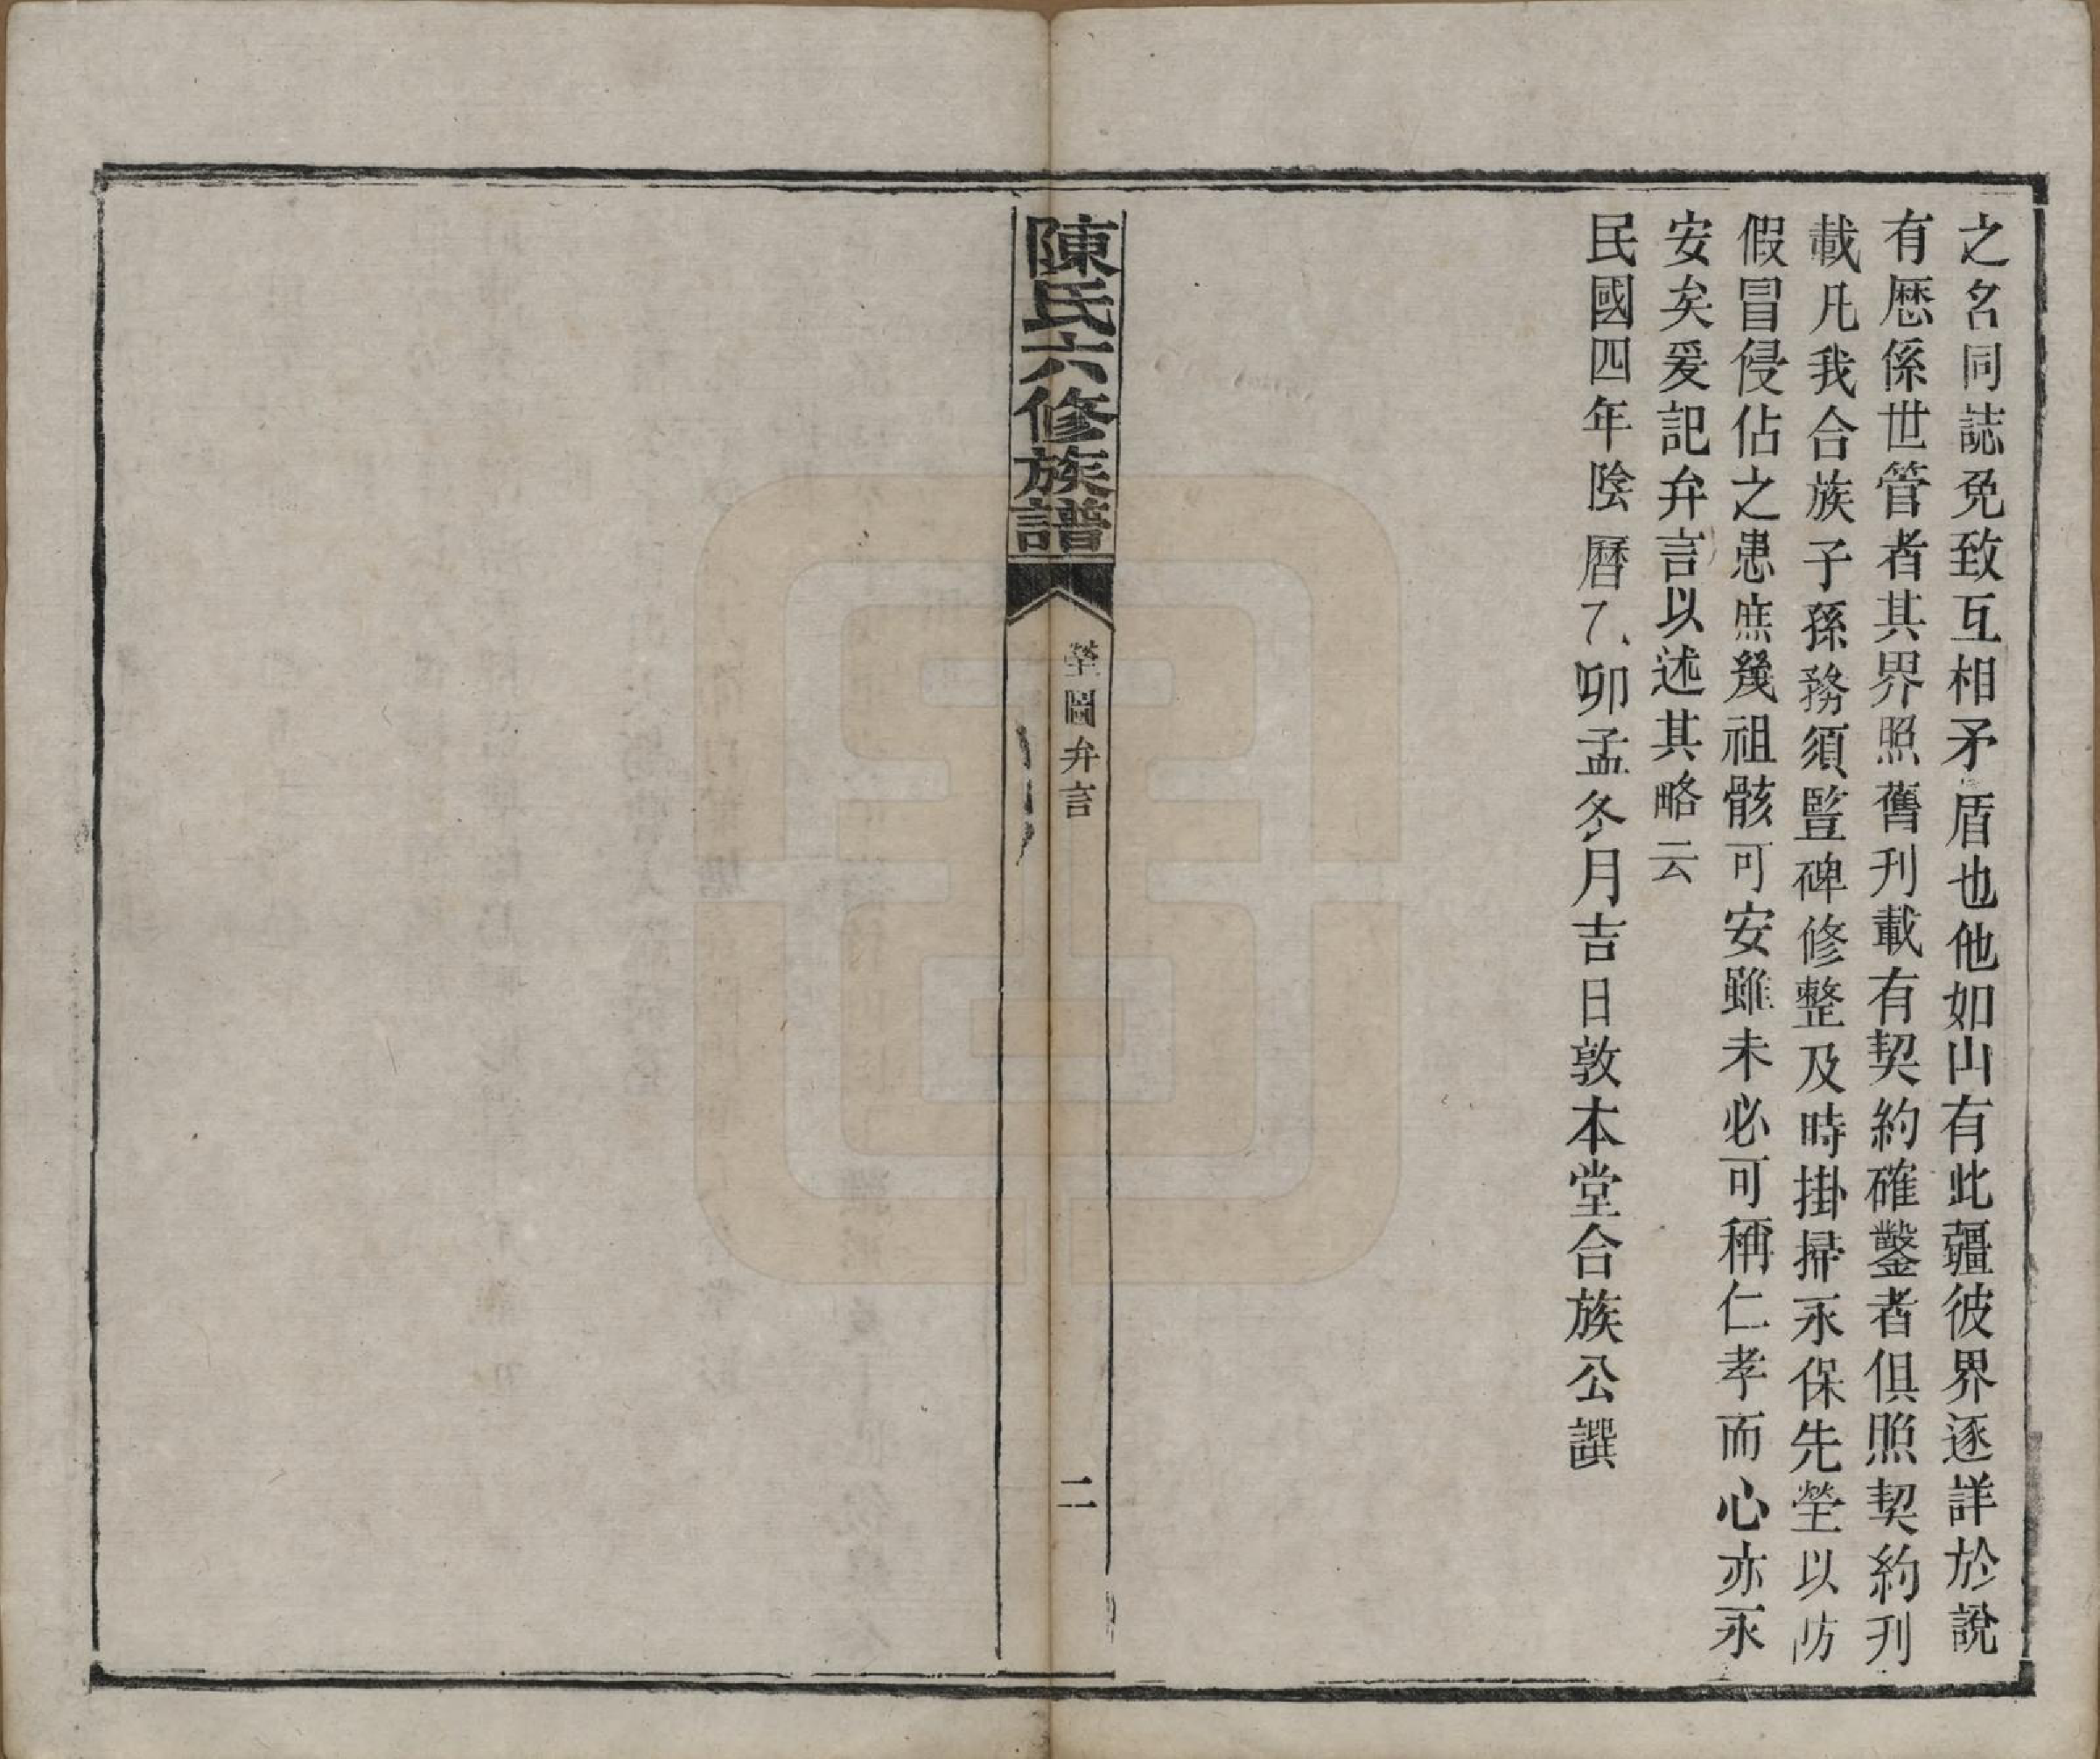 之名同誌免致互相矛盾也他如山有此疆彼界逐詳於說
有厯係世管者其界照舊刋載有契約確鑿者俱照契約刋
載凡我合族子孫務須豎碑修整及時掛掃永保先塋以防
假冒侵佔之患庶幾祖骸可安雖未必可稱仁孝而心亦永
安矣爰記弁言以述其略云
民國四年陰曆乙卯孟冬月吉日敦本堂合族公譔
陳氏六修族譜
塋圖弁言
二